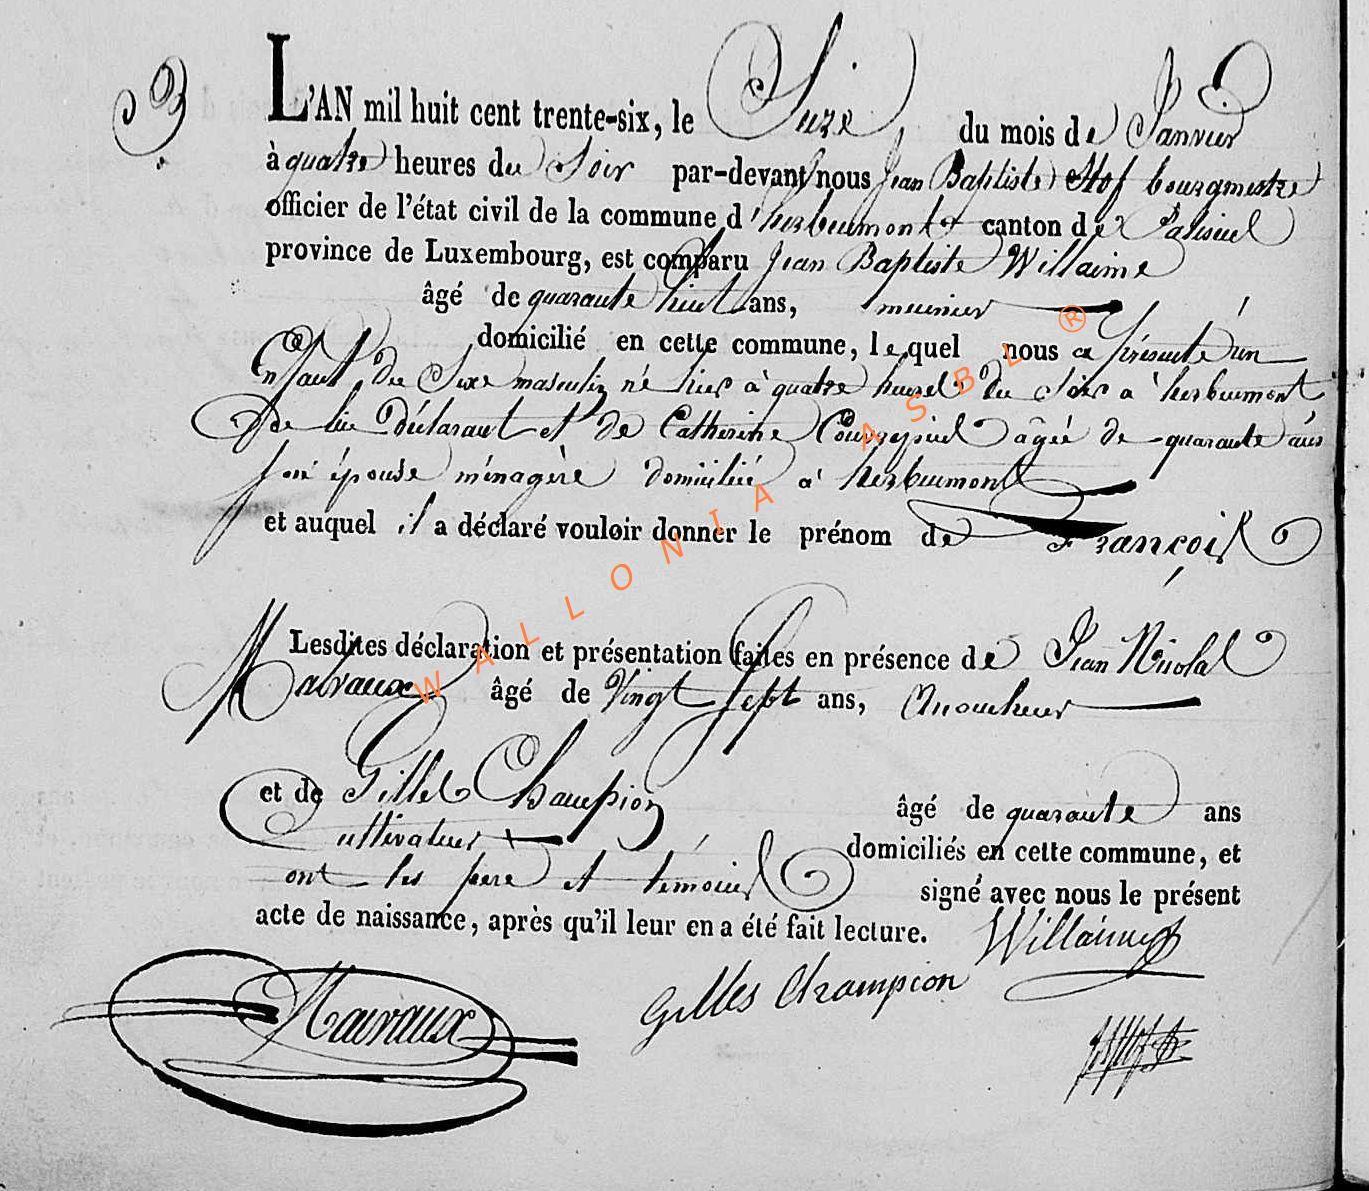 3
L'AN mil huit cent trente-six, le Suze du mois de Janvier
à quatre heures du Soir par-devant nous Jean Baptiste Stof bourgmestre
officier de l'état civil de la commune d'herbeumont canton de Paliseul
province de Luxembourg, est comparu Jean Baptiste Willaime
âgé de quarante huit ans, meunier
domicilié en cette commune, lequel nous a présenté un
Enfant du Sexe masculin né hier à quatre heures du soir a herbeumont
De lui Déclarant et de Catherine âgée de quarante ans
son épouse ménagère domiciliée à herbeumont
et auquel il a déclaré vouloir donner le prénom de François
Lesdites déclaration et présentation faites en présence de Jean Nicolas
Mavaux âgé de Vingt Sept ans,
et de Gilles Champion âgé de quarante ans
cultivateur domiciliés en cette commune, et
ont les père et témoins signé avec nous le présent
acte de naissance, après qu'il leur en a été fait lecture.
Willaime
Gilles Champion
Mavaux
WALLONIA ASBL ®